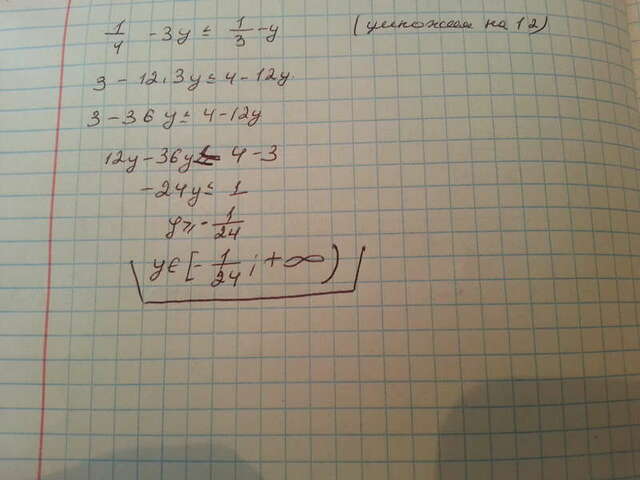 1/4 - 3y ≤ 1/3 - y (умножаем на 12)
3 - 12·3y ≤ 4 - 12y
3 - 36y ≤ 4 - 12y
12y - 36y ≤ 4 - 3
-24y ≤ 1
y ≥ -1/24
y ∈ [-1/24; +∞)